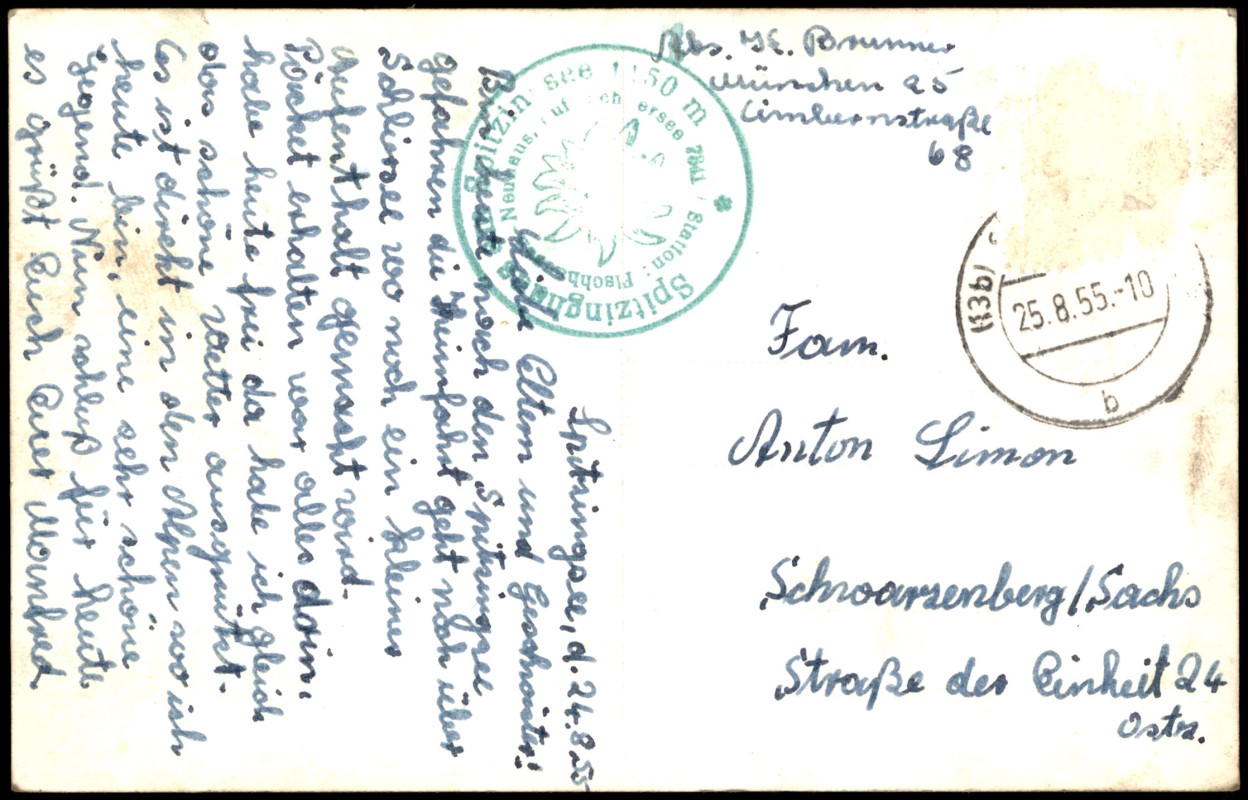 Abs. K. Brunner
München 25
Cimbernstraße
68
Spitzinghaus am Spitzingsee 1150 m
Neuhaus, Station:
(13b)
25.8.55.-10
b
Fam.
Anton Simon
Schwarzenberg/Sachs
Straße der Einheit 24
Ostz.
Spitzingsee, d. 24.8.55
Liebe Eltern und Geschwister!
Bin heute nach den Spitzingsee
gefahren die Heimfahrt geht noch über
Schliersee wo noch ein kleiner
Aufenthalt gemacht wird.
Päcket erhalten war alles drin,
habe heute frei da habe ich gleich
das schöne Wetter ausgenützt.
Es ist direkt in den Alpen wo ich
heute bin, eine sehr schöne
Gegend. Nun schluß für heute
es grüßt Euch Euer Manfred